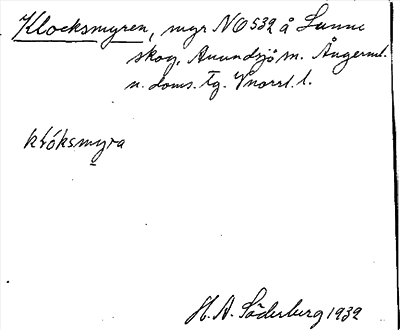 Klocksmyren, myr NO 532 å Sunne
skog, Anundsjö sn. Ångerml.
n. doms. tg. Vnorrl. l.
klóksmyra
H. A. Söderberg 1939